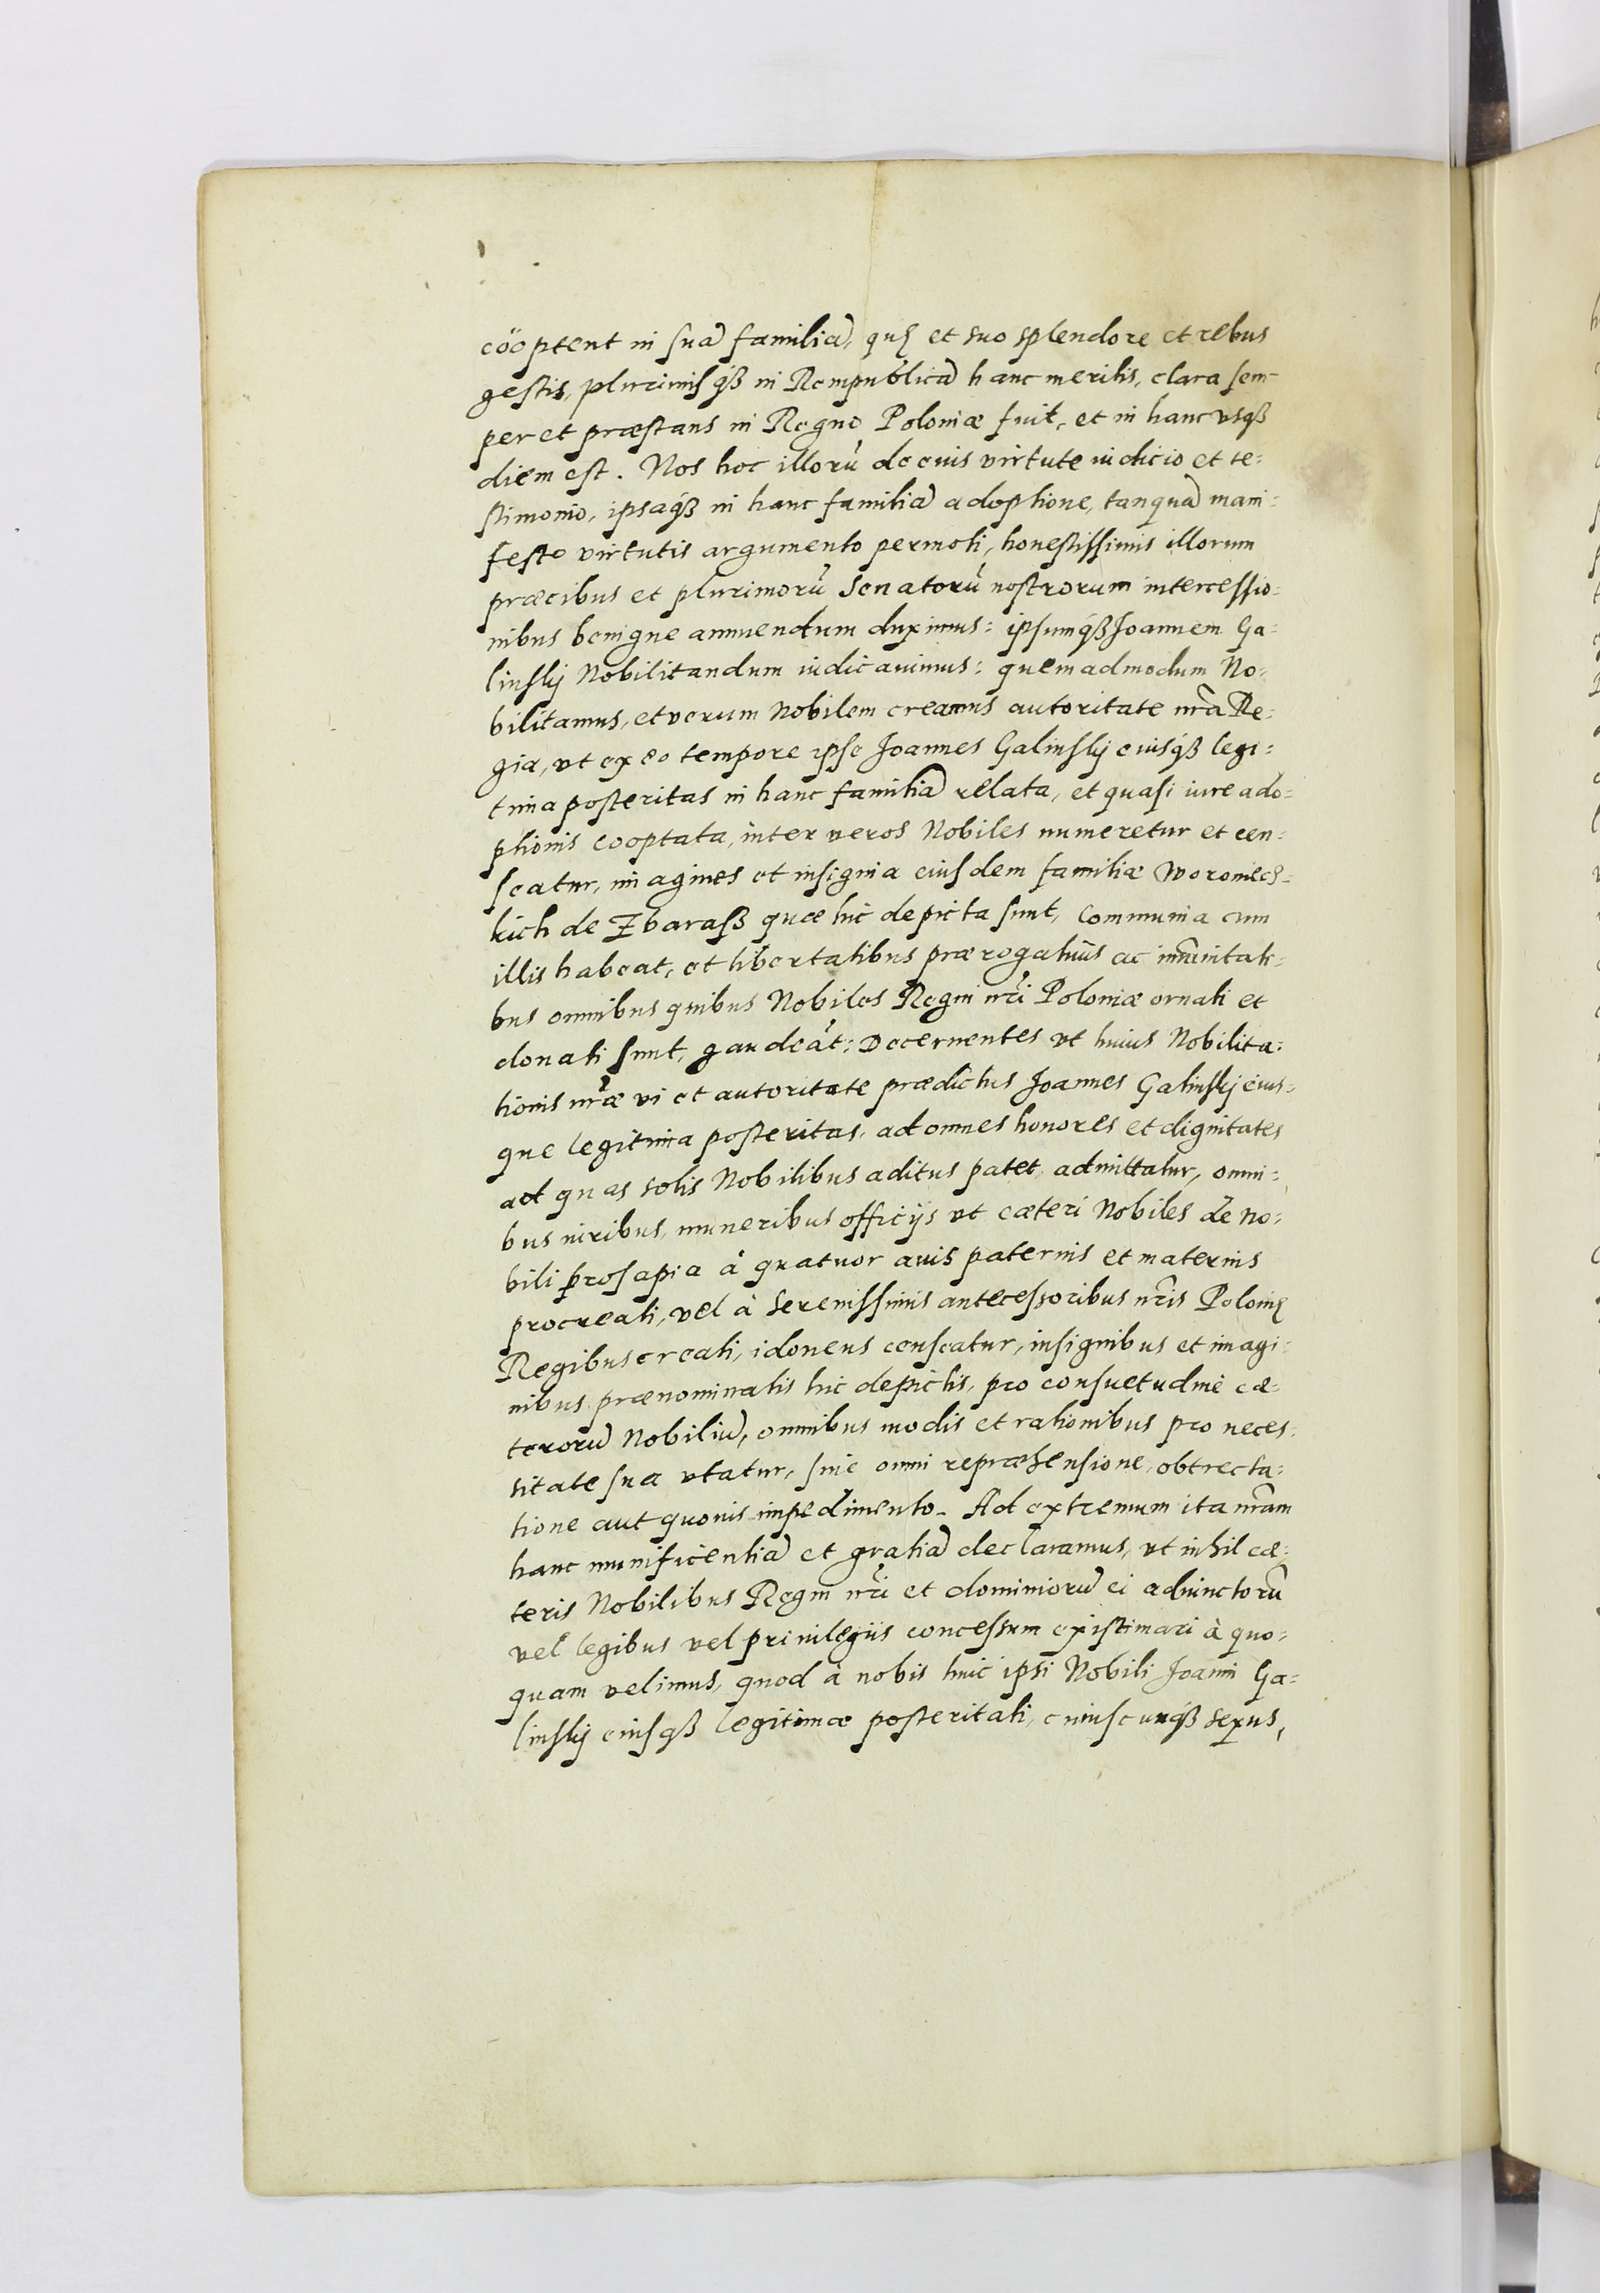 cöoptent in suā familiā, quę et suo splendore et rebus
gestis, plurimisq́ꝫ in Rempublicā hanc meritis, clara sem-
per et præstans in Regno Poloniæ fuit, et in hanc usqꝫ
diem est. Nos hoc illorū de eius virtute iudicio et te=
stimonio, ipsaq́ꝫ in hanc familiā adoptione, tanquā mani=
festo virtutis argumento permoti, honestissimis illorum
præcibus et plurimorū Senatorū nostrorum intercessio=
nibus benigne annuendum duximus: ipsumq́ꝫ Joannem Ga=
linskj Nobilitandum iudicauimus: quemadmodum No=
bilitamus, et verum Nobilem creamus autoritate nr̃a Re=
gia, vt ex eo tempore ipse Joannes Galinskij eiusq́ꝫ legi=
tima posteritas in hanc familiā relata, et quasi iure ado=
ptionis cooptata, inter veros Nobiles numeretur et cen=
seatur, imagines et insignia eiusdem familiæ Woroniecz=
kich de Zbaraß quæ hic depicta sunt, communia cum
illis habeat, et libertatibus prærogatiuis ac im̃unitati=
bus omnibus quibus Nobiles Regni nr̃i Poloniæ ornati et
donati sunt, gaudeāt: Decernentes vt huius Nobilita=
tionis nr̃æ vi et autoritate prædictus Joannes Galinskj eius=
que legitima posteritas, ad omnes honores et dignitates
ad quas solis Nobilibus aditus patet, admittatur, omni=
bus iuribus, muneribus officijs vt cæteri Nobiles de No=
bili prosapia à quatuor auis paternis et maternis
procreati, vel à Serenissimis antecessoribus nr̃is Polonię
Regibus creati, idoneus censeatur, insignibus et imagi=
nibus prænominatis hic depictis, pro consuetudine cæ=
terorū Nobiliū, omnibus modis et rationibus pro neces=
sitate sua vtatur, sine omni repræhensione, obtrecta=
tione aut quouis impedimento. Ad extremum ita nr̃am
hanc munificentiā et gratiā declaramus, vt nihil cæ=
teris Nobilibus Regni nr̃i et dominiorū ei adiunctorū
vel legibus vel priuilegiis concessum existimari à quo=
quam velimus, quod à nobis huic ipsi Nobili Joanni Ga=
linskj eiusqꝫ legitimæ posteritati, cuiuscunq́ꝫ sexus,